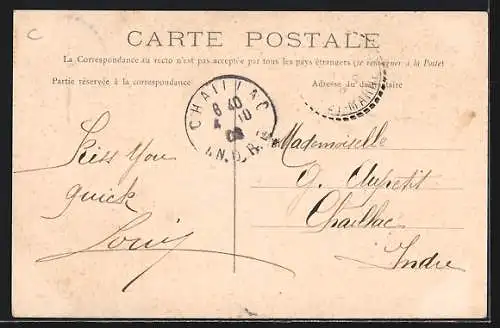 C
CARTE POSTALE
La Correspondance au recto n'est pas acceptée par tous les pays étrangers (se renseigner à la Poste)
Partie réservée à la correspondance
Adresse du destinataire
CHAILLAC
6 40
4 10
08
INDRE
Kiss You
quick
Louis
Mademoiselle
G. Aupetit
Chaillac
Indre